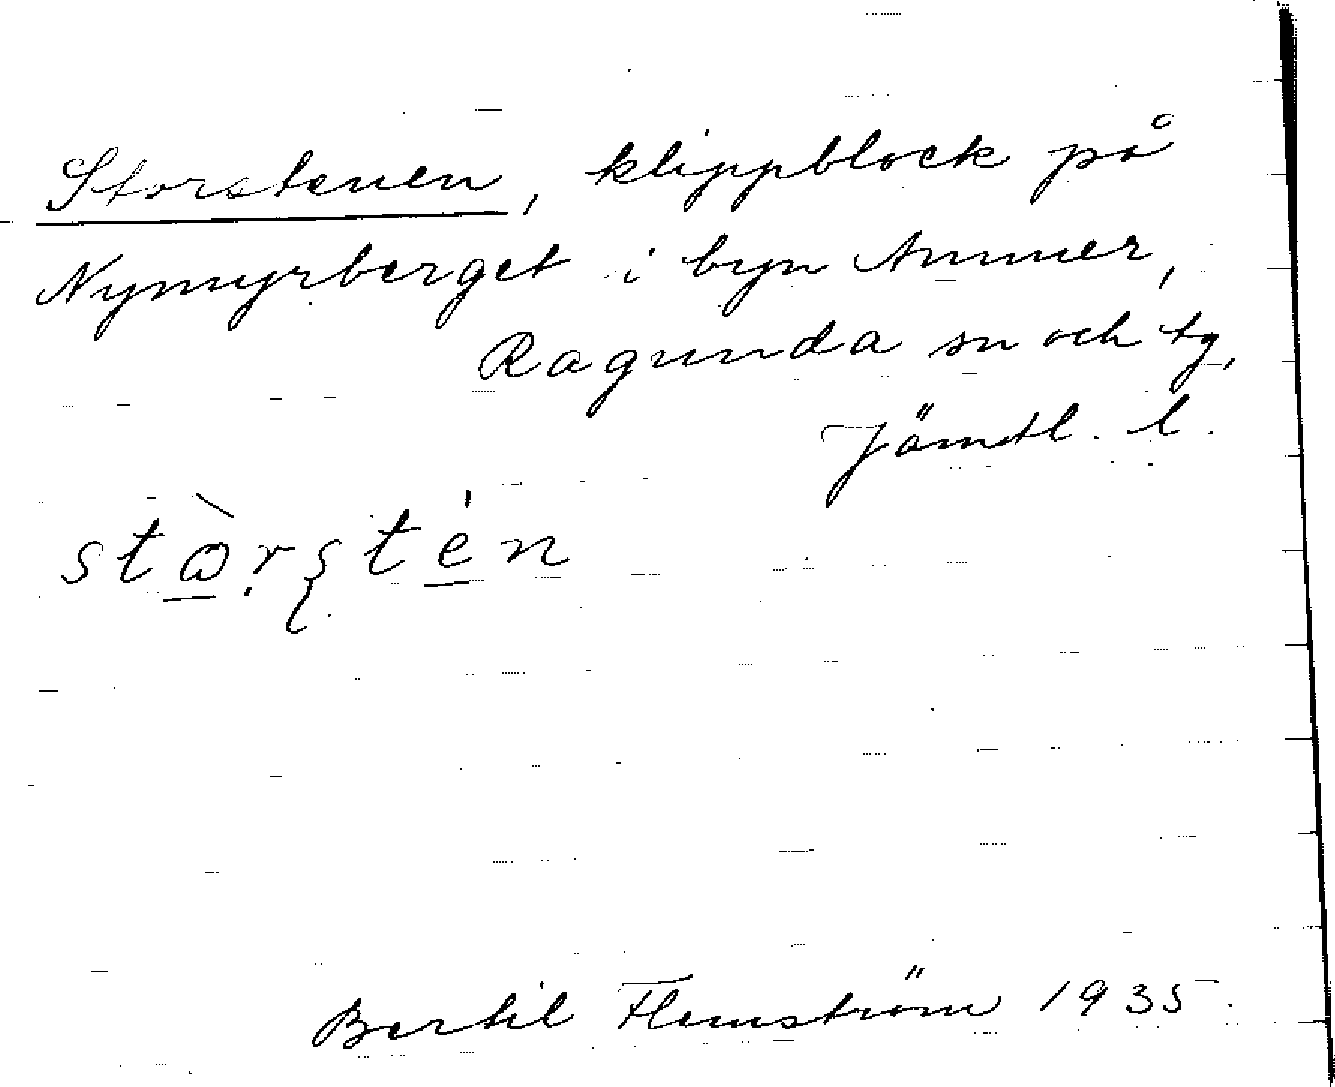 Storstenen, klippblock på
Nymyrberget i byn Ammer,
Ragunda sn och tg,
Jämtl. l.
Bertil Flemström 1935.